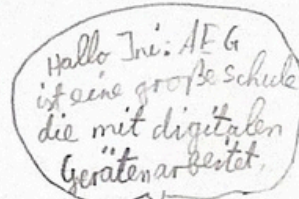 Hallo Ini: AEG
ist eine große Schule
die mit digitalen
Geräten arbeitet.